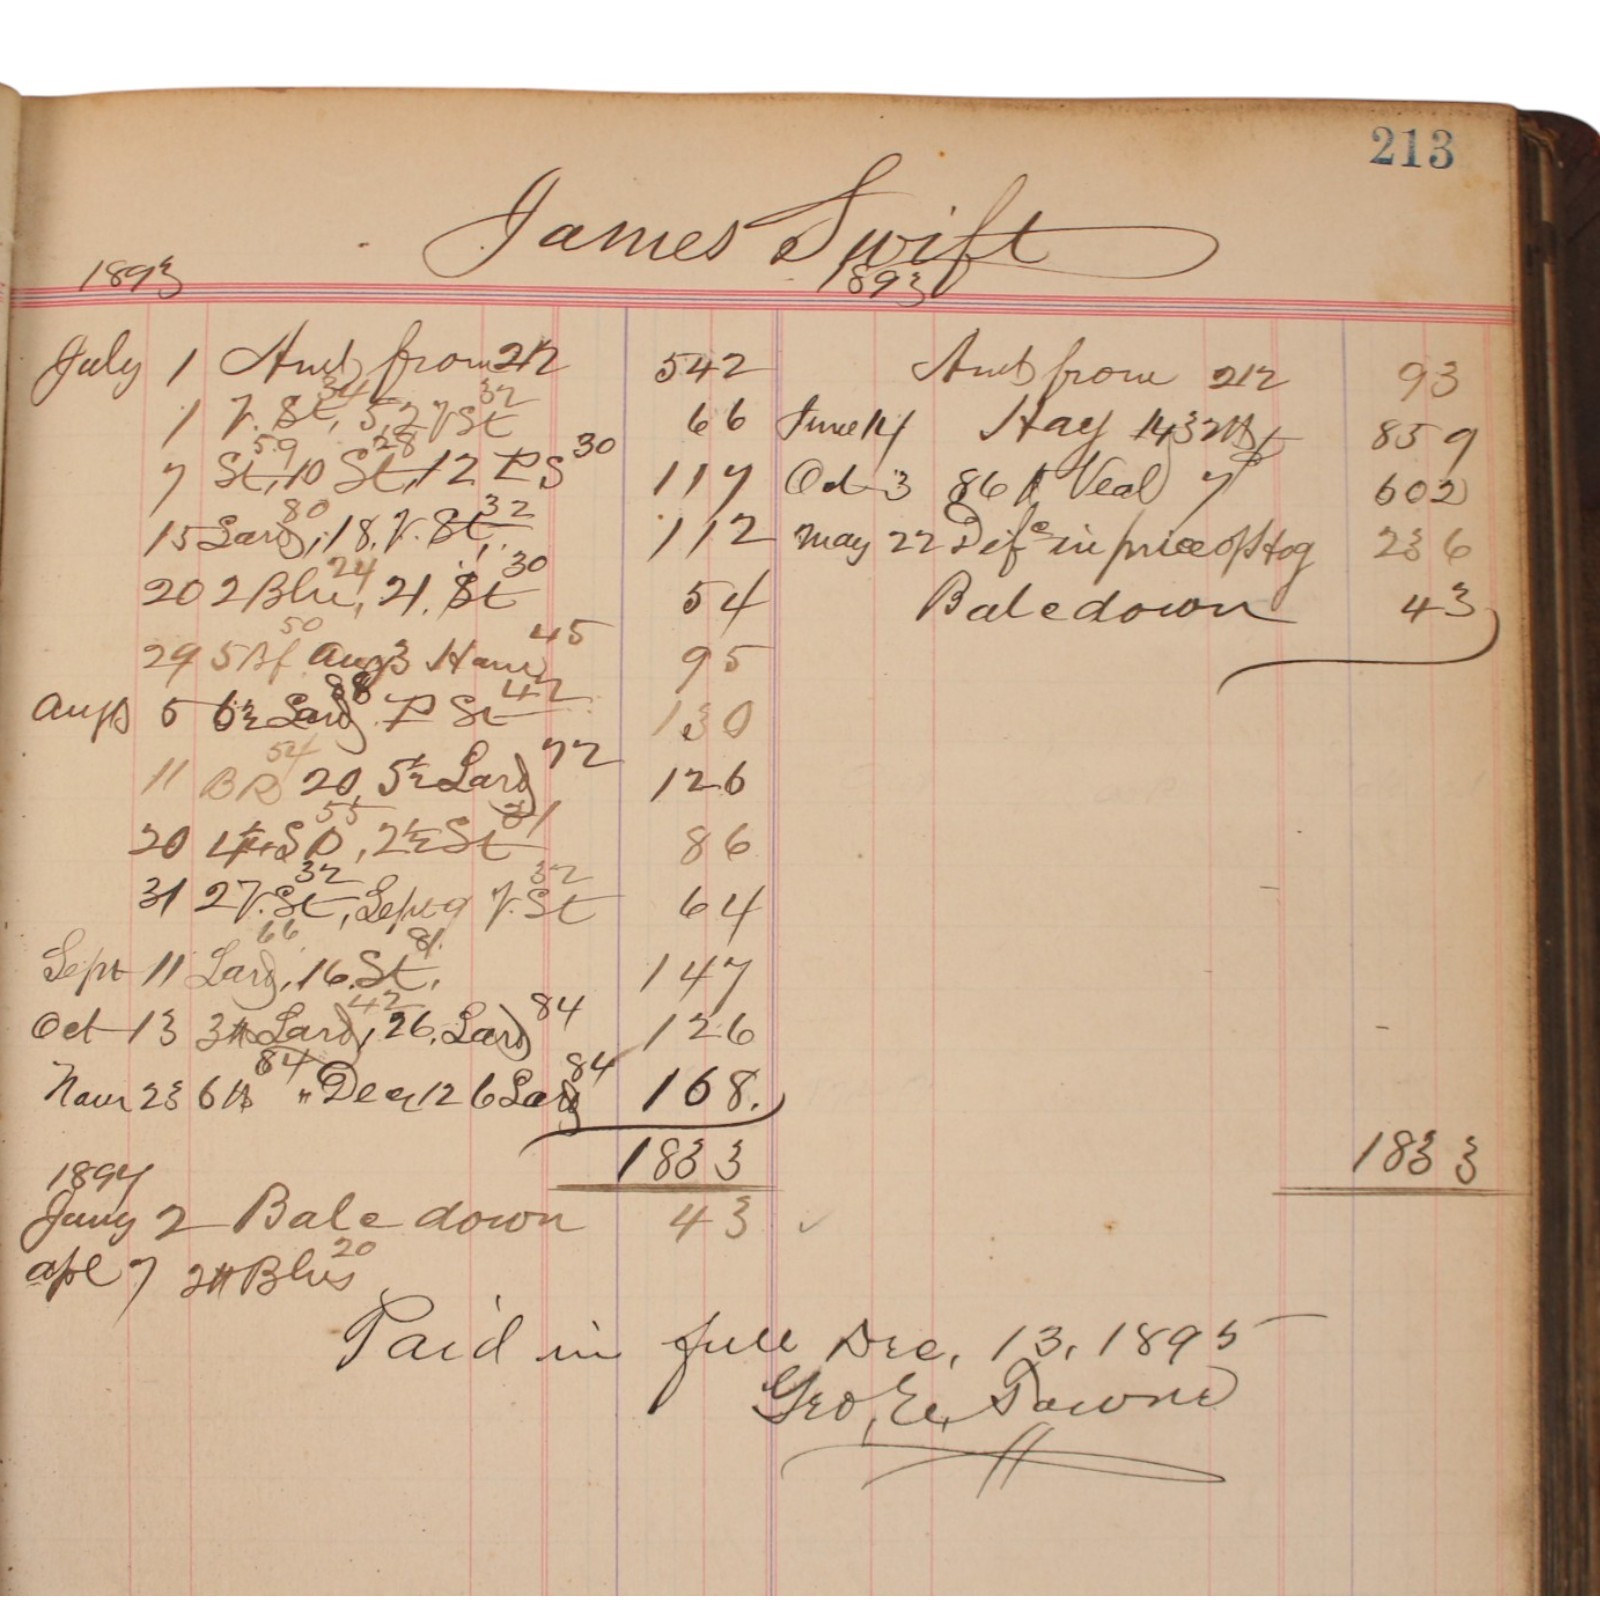 213
James Swift
1893 1893
July 1 Amt from 212 542 Amt from 212 93
1 V. St, 34 5, 2 V St 32 66 June 14 Hay 1432 lbs 859
7 St, 59 10 St, 28 12 P S 30 117 Oct 3 86 # Veal 7 602
15 Lard, 80 18. V. St, 32 112 May 22 Difce in price of Hog 236
20 2 Blu, 24 21. St 30 54 Bale down 43
29 5 Bf 50 Aug 3 Ham 45 95
Augt 5 6½ Lard 88 P St 42 130
11 BR 54 20, 5½ Lard 72 126
20 S P 55, 2½ St 31 86
31 2 V. St, 32 Sept 9 V. St 32 64
Sept 11 Lard, 66 16. St, 81 147
Oct 13 3# Lard, 42 26. Lard 84 126
Nov 23 6 lb 84 " Dec 12 6 Lard 84 168.
1833 1833
1894
Jany 2 Bale down 43
Apl 7 2# Blus 20
Paid in full Dec, 13, 1895
Geo, E, Towne